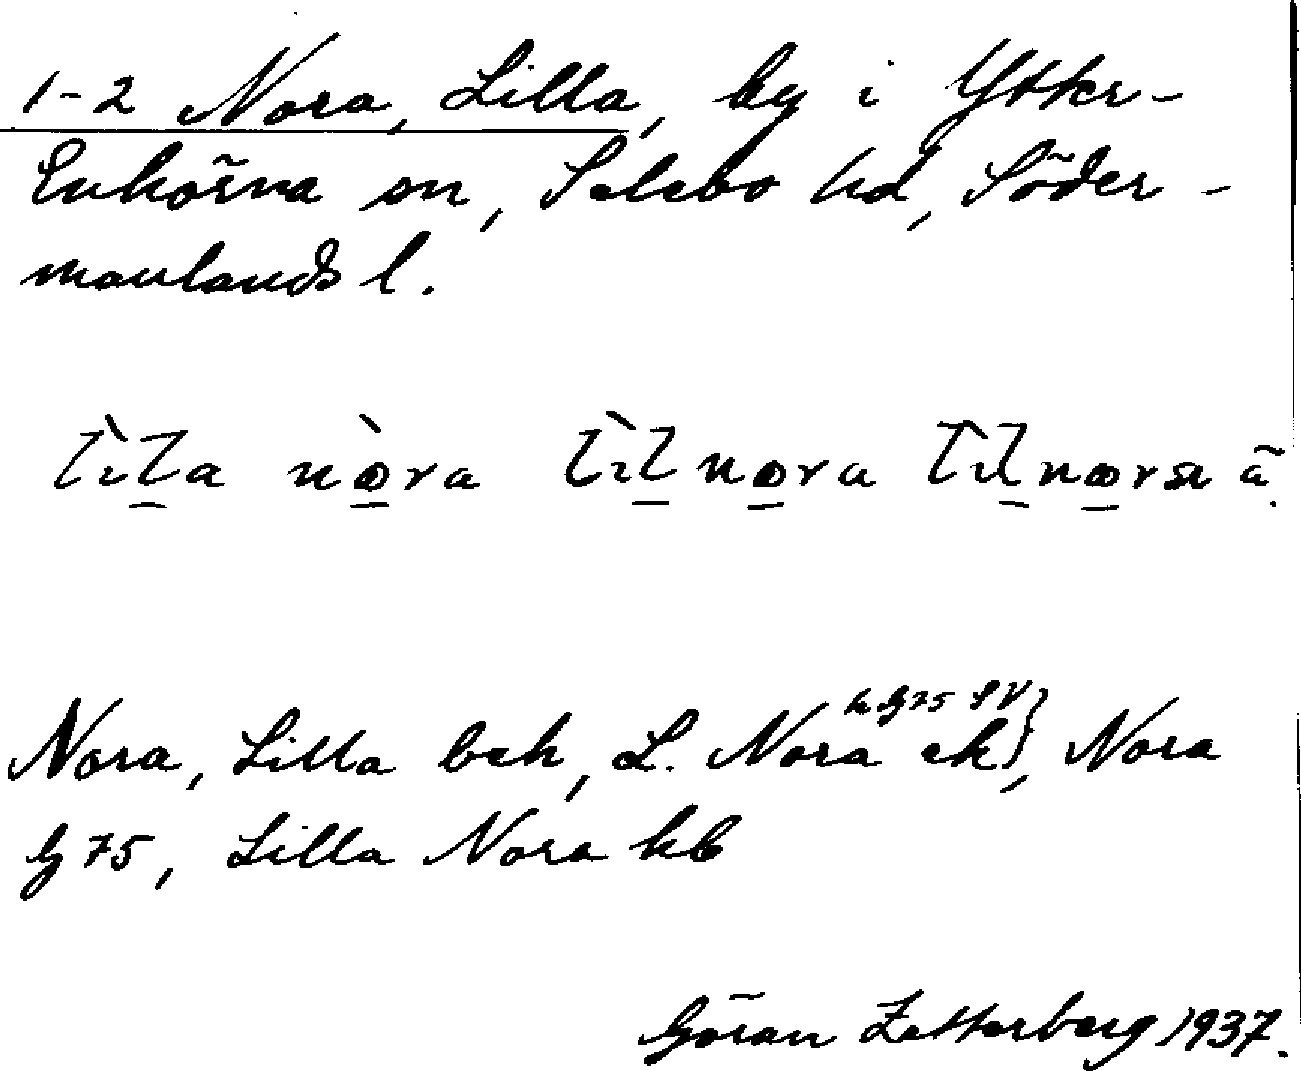 1-2 Nora, Lilla, by i Ytter-
Enhörna sn, Selebo hd, Söder-
manlands l.
lìla nòra lìlnora lìlnorsa ā.
h G75 SV}
Nora, Lilla beh, L. Nora ek, Nora
G 75, Lilla Nora kb
Göran Zetterberg 1937.